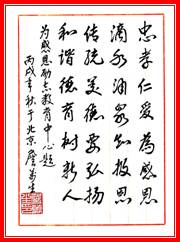 忠孝仁爱为感恩
滴水涌泉知报恩
传统美德要弘扬
和谐德育树新人
为感恩励志教育中心题
丙戌年秋于北京